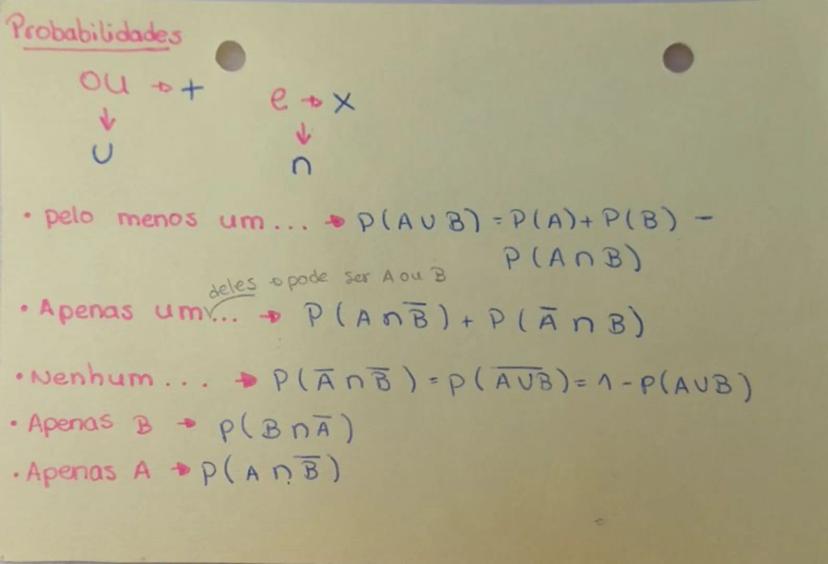 Probabilidades
OU → + e → x
↓ ↓
∪ ∩
• pelo menos um... → P(A∪B) = P(A) + P(B) -
P(A∩B)
deles → pode ser A ou B
• Apenas um... → P(A∩B̅) + P(A̅∩B)
• Nenhum... → P(A̅∩B̅) = P(A̅∪̅B̅) = 1 - P(A∪B)
• Apenas B → P(B∩A̅)
• Apenas A → P(A∩B̅)